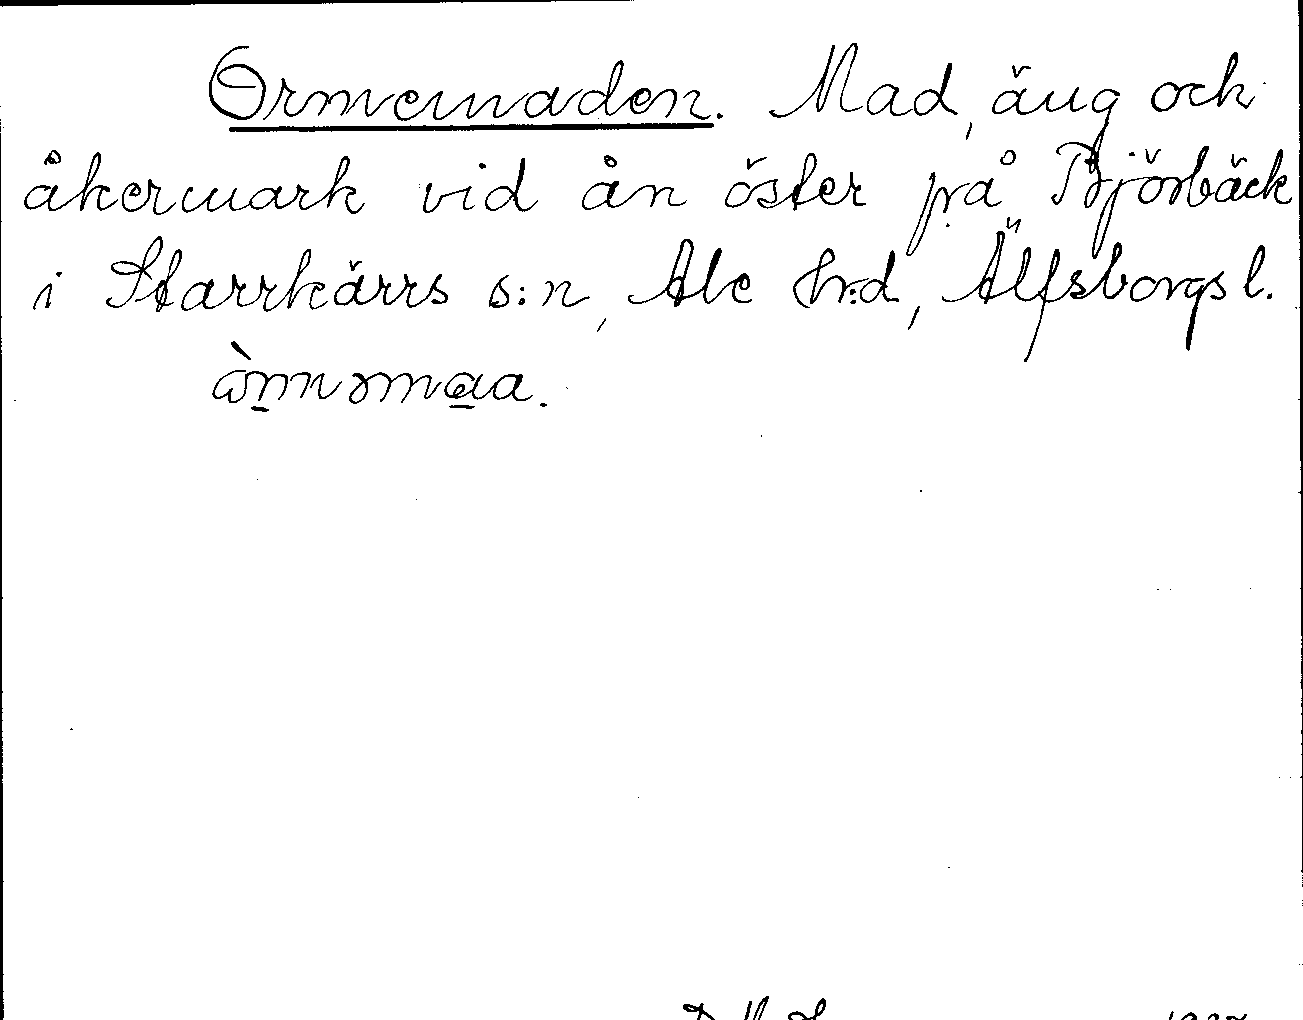 Ormemaden. Mad, äng och
åkermark vid ån öster på Björbäck
i Starrkärrs s:n, Ale hr:d, Älfsborgs l.